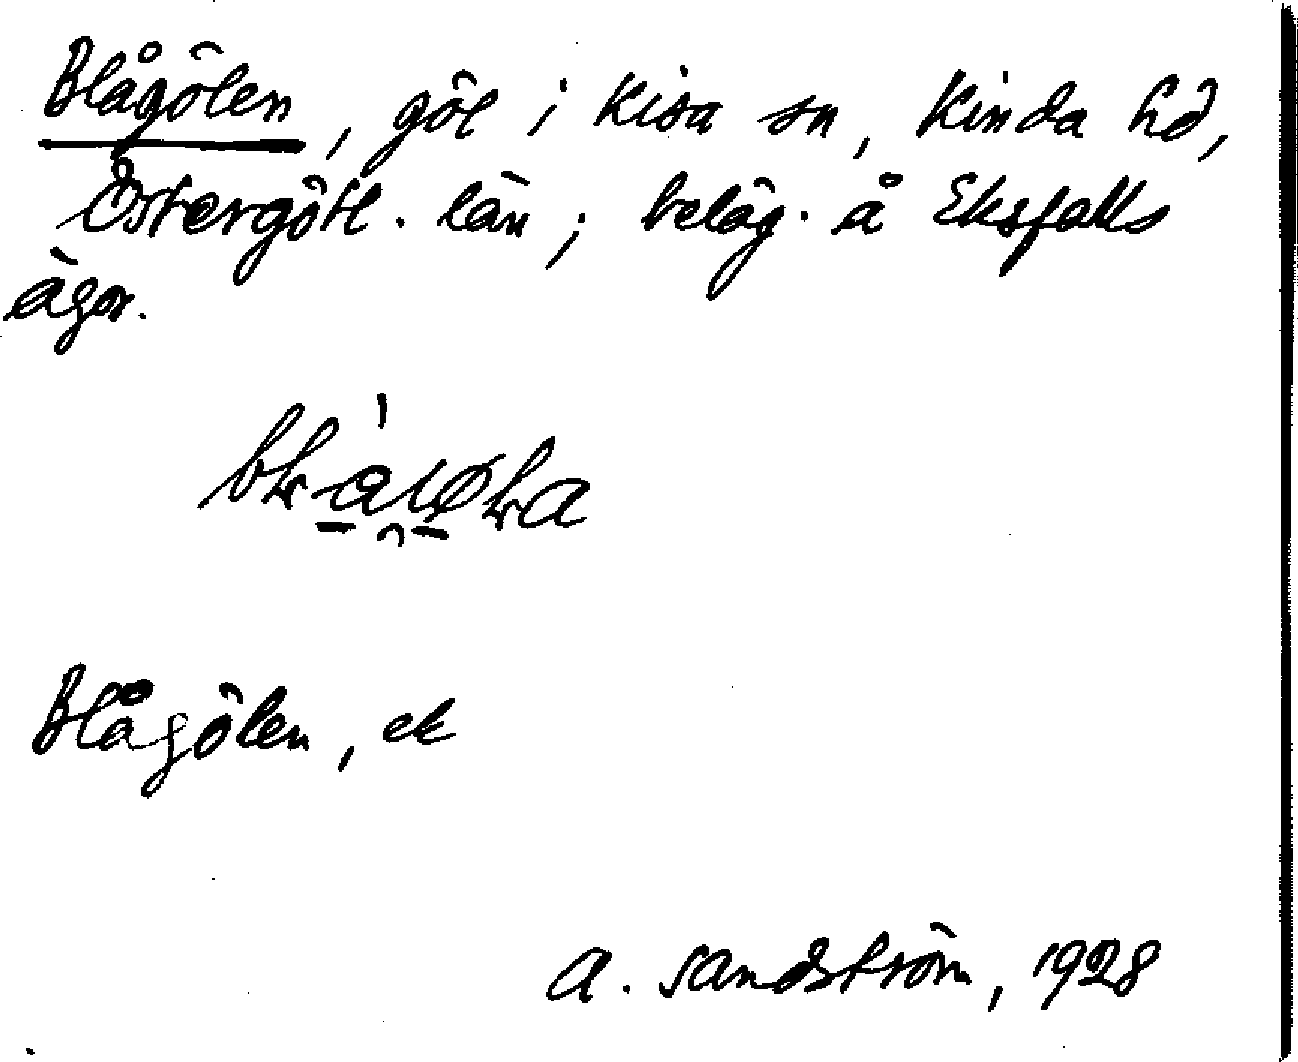 Blågölen, göl i Kisa sn, Kinda hd,
Östergötl. län; beläg. å Eksfalls
ägor.
Blågölen, ek
A. Sandström, 1928